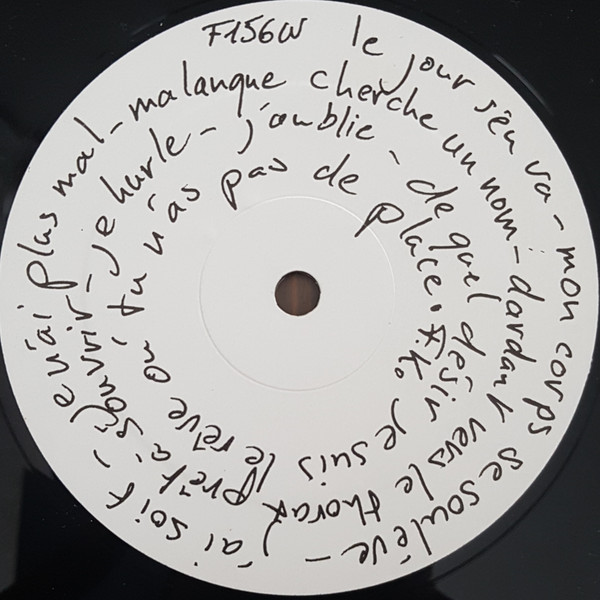 F156W
le jour s'en va - mon corps se soulève - j'ai soif - je n'ai plus mal -
malangue cherche un nom - dardant vers le thorax prêt à s'ouvrir -
je hurle - j'oublie - de quel désir je suis le rêve où
tu n'as pas de place. F.K.